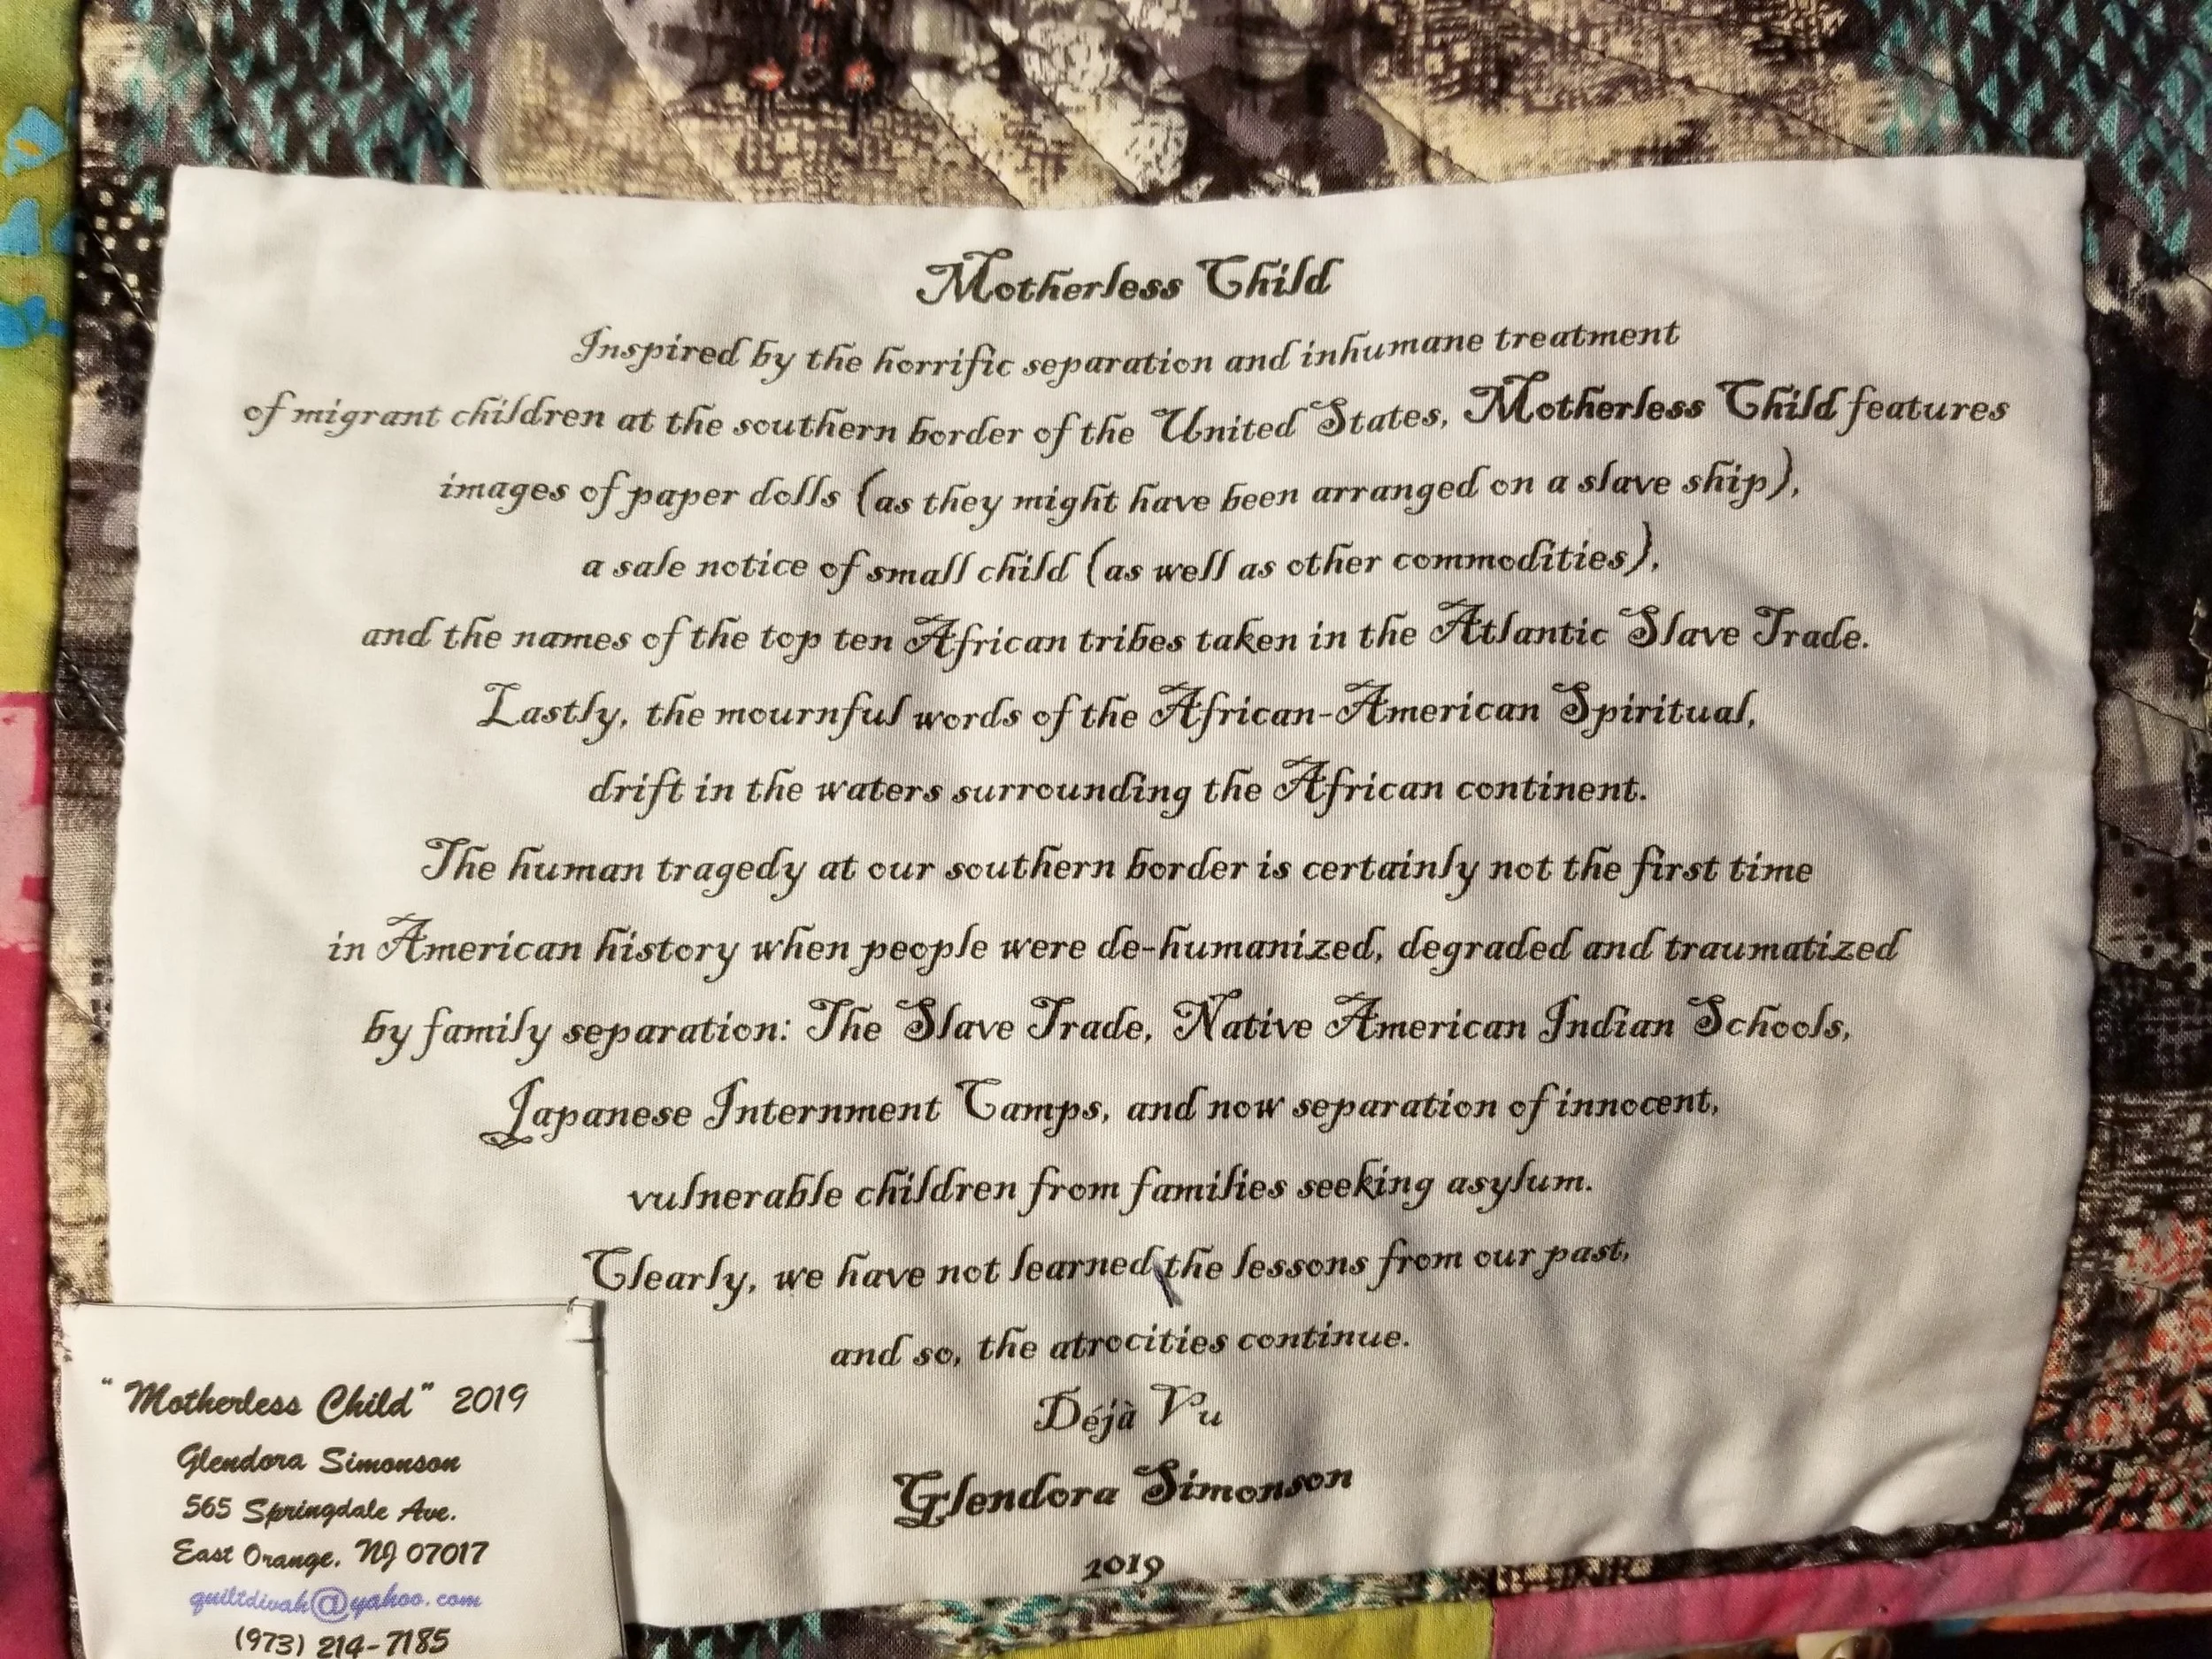 Motherless Child
Inspired by the horrific separation and inhumane treatment
of migrant children at the southern border of the United States, Motherless Child features
images of paper dolls (as they might have been arranged on a slave ship),
a sale notice of small child (as well as other commodities),
and the names of the top ten African tribes taken in the Atlantic Slave Trade.
Lastly, the mournful words of the African-American Spiritual,
drift in the waters surrounding the African continent.
The human tragedy at our southern border is certainly not the first time
in American history when people were de-humanized, degraded and traumatized
by family separation: The Slave Trade, Native American Indian Schools,
Japanese Internment Camps, and now separation of innocent,
vulnerable children from families seeking asylum.
Clearly, we have not learned the lessons from our past,
and so, the atrocities continue.
Déjà Vu
Glendora Simonson
2019
"Motherless Child" 2019
Glendora Simonson
565 Springdale Ave.
East Orange, NJ 07017
quiltdivah@yahoo.com
(973) 214-7185